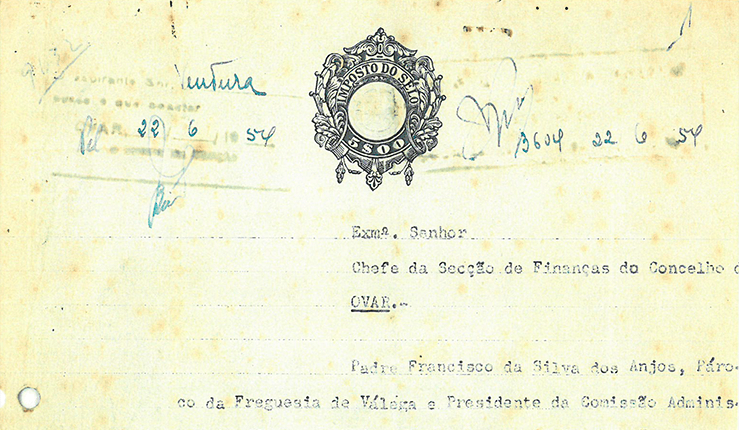 Ventura
OVAR, 22 / 6 / 19 54
IMPOSTO DO SÊLO
5$00
3604 22 6 54
Exmº. Senhor
Chefe da Secção de Finanças do Concelho d
OVAR.-
Padre Francisco da Silva dos Anjos, Páro-
co da Freguesia de Válega e Presidente da Comissão Adminis-